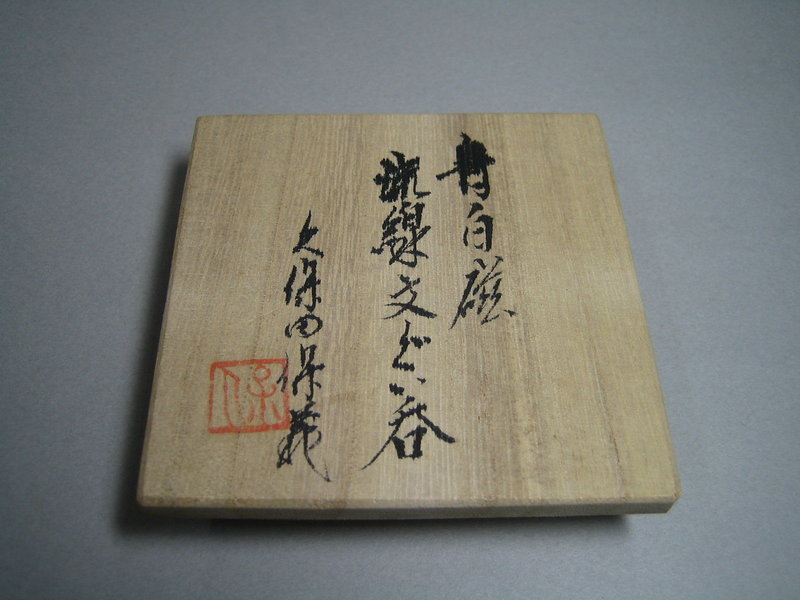 青白磁
線文ぐい呑
久保田保義